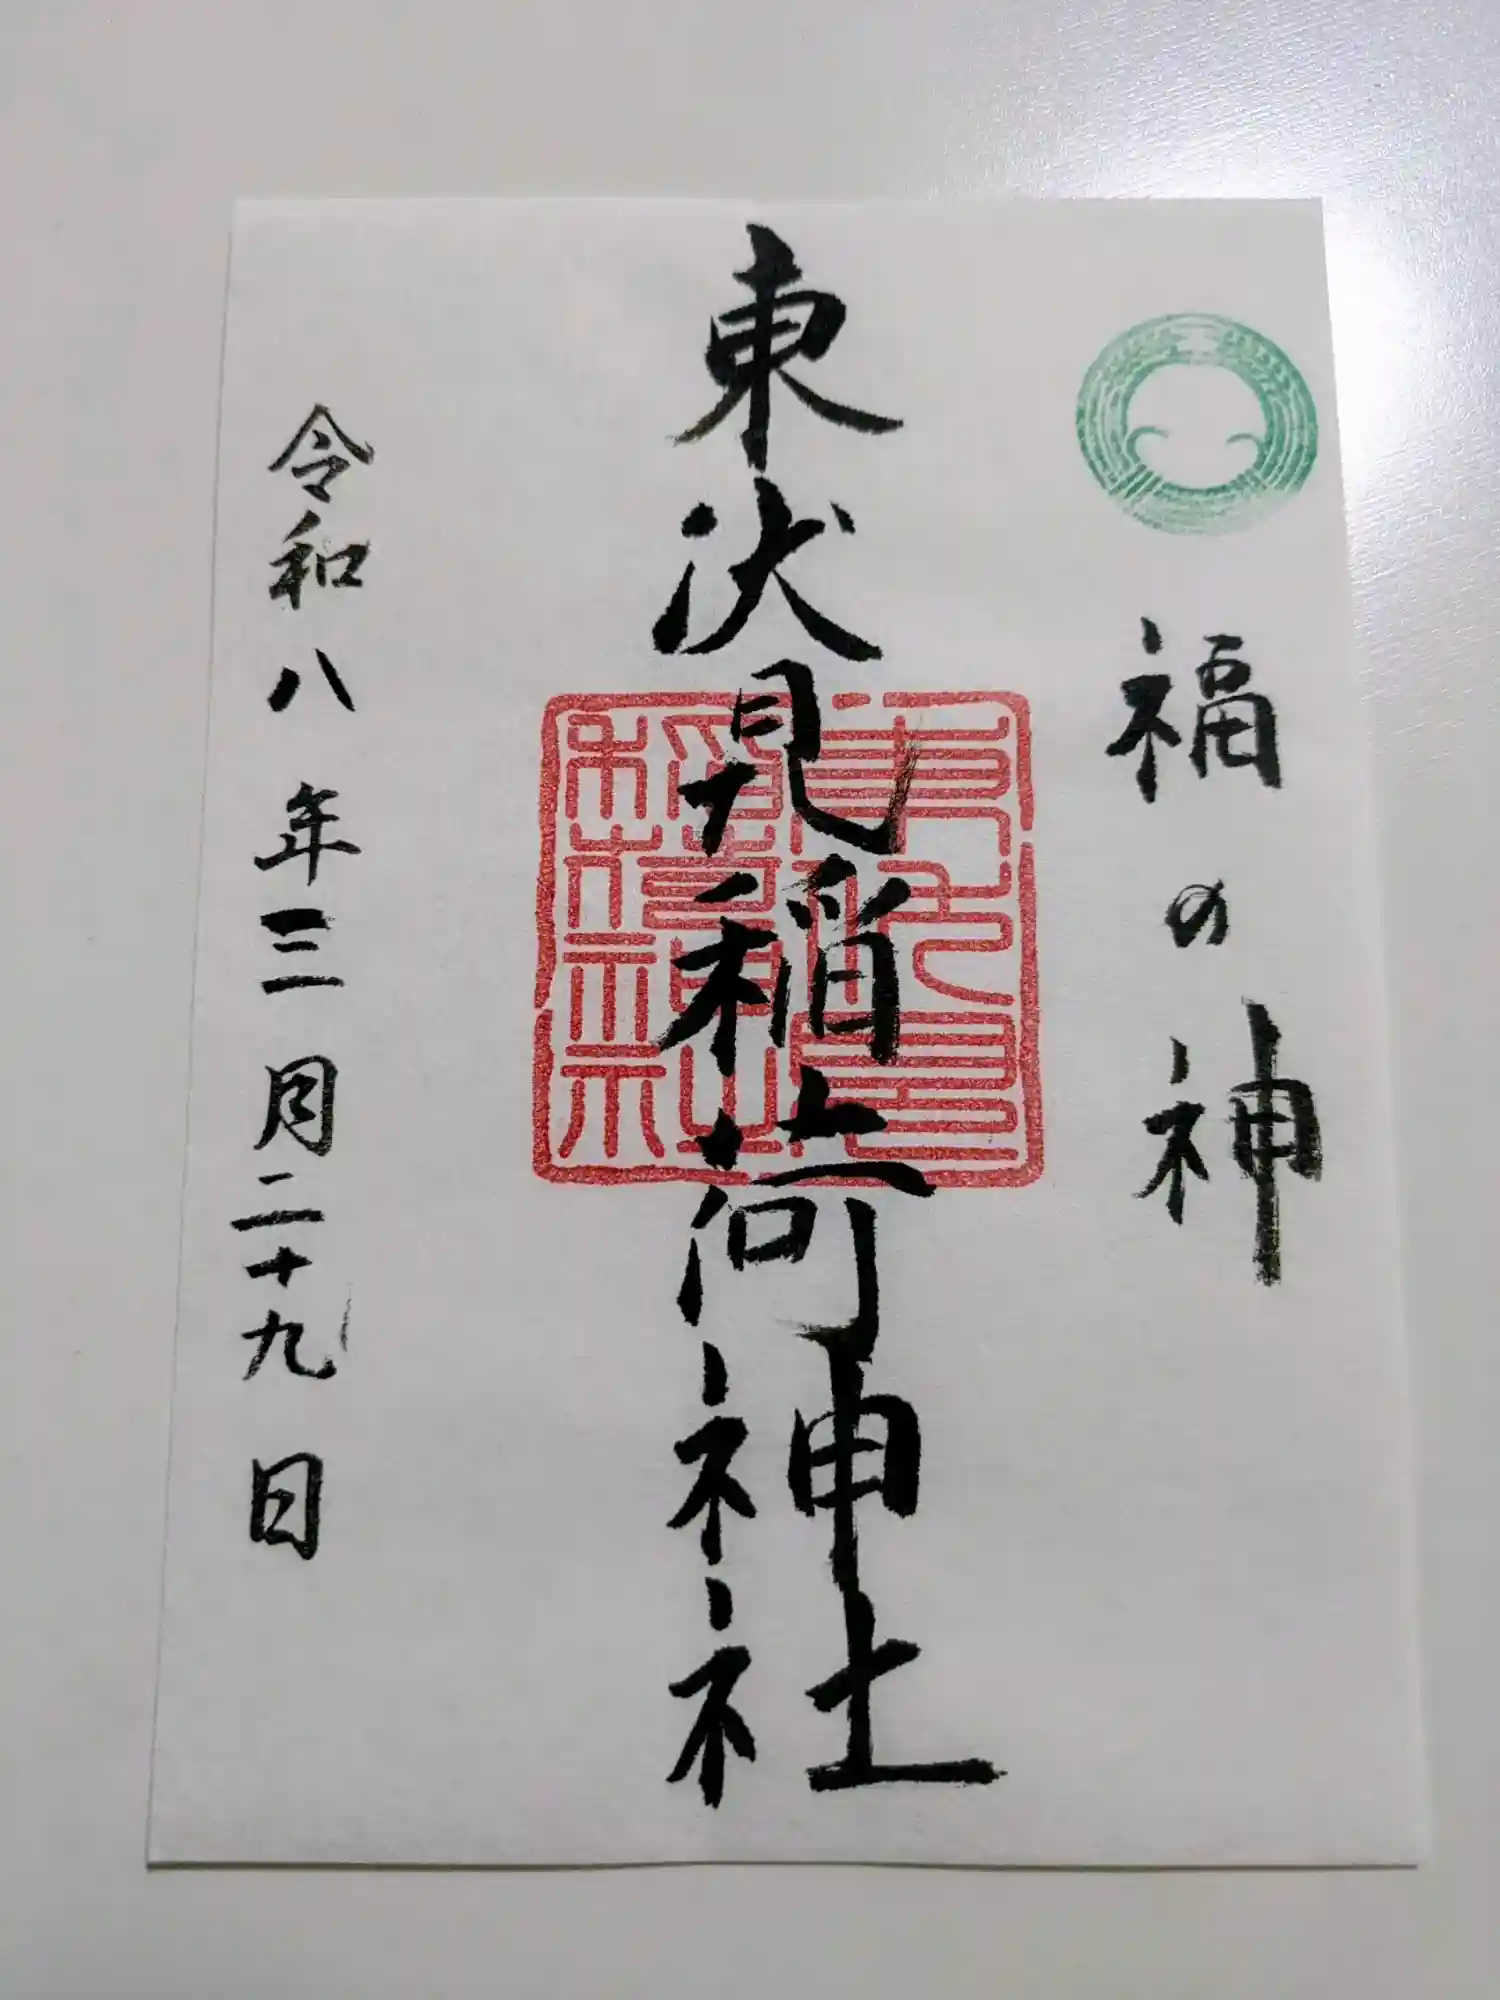 福の神
東伏見稲荷神社
令和八年三月二十九日